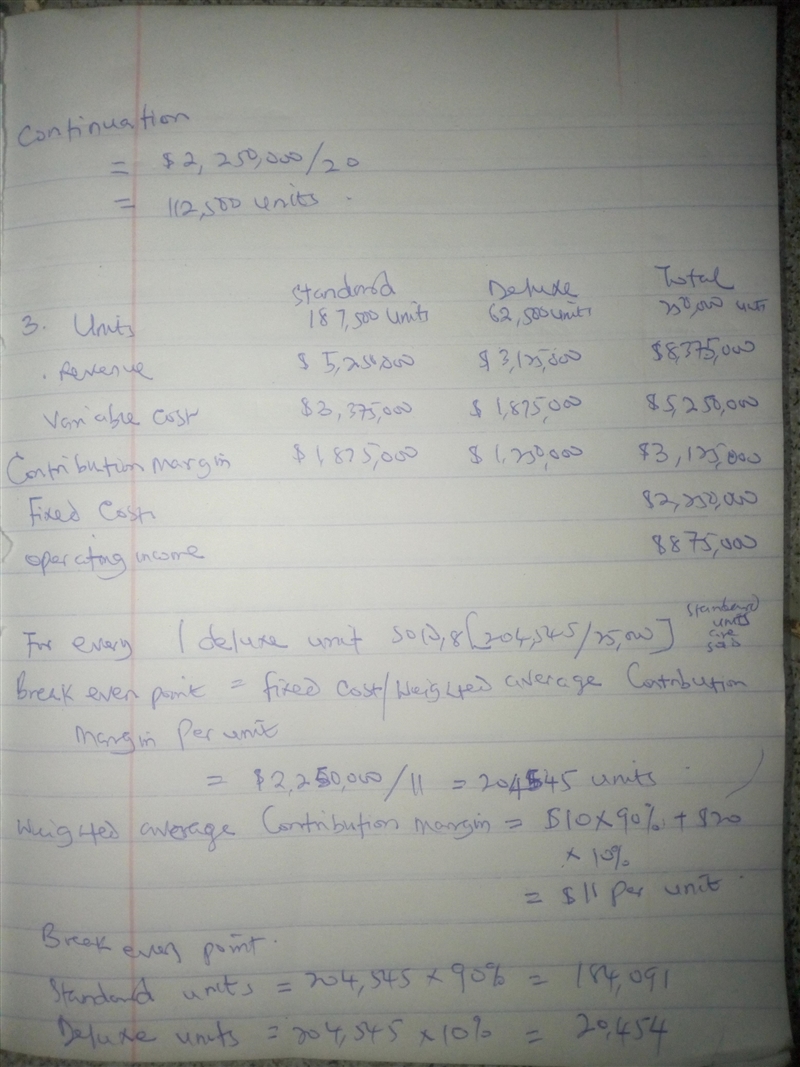 Continuation
= $2,250,000/20
= 112,500 units.
Standard Deluxe Total
3. Units 187,500 units 62,500 units 250,000 units
. Revenue $5,250,000 $3,125,000 $8,375,000
Variable cost $3,375,000 $1,875,000 $5,250,000
Contribution margin $1,875,000 $1,250,000 $3,125,000
Fixed Cost $2,250,000
operating income $875,000
For every 1 deluxe unit sold, 8[204,545/25,000] standard units are sold
Break even point = fixed cost/Weighted average Contribution
margin Per unit
= $2,250,000/11 = 204545 units.
Weighted average Contribution margin = $10 x 90% + $20
x 10%
= $11 per unit.
Break even point.
Standard units = 204,545 x 90% = 184,091
Deluxe units = 204,545 x 10% = 20,454